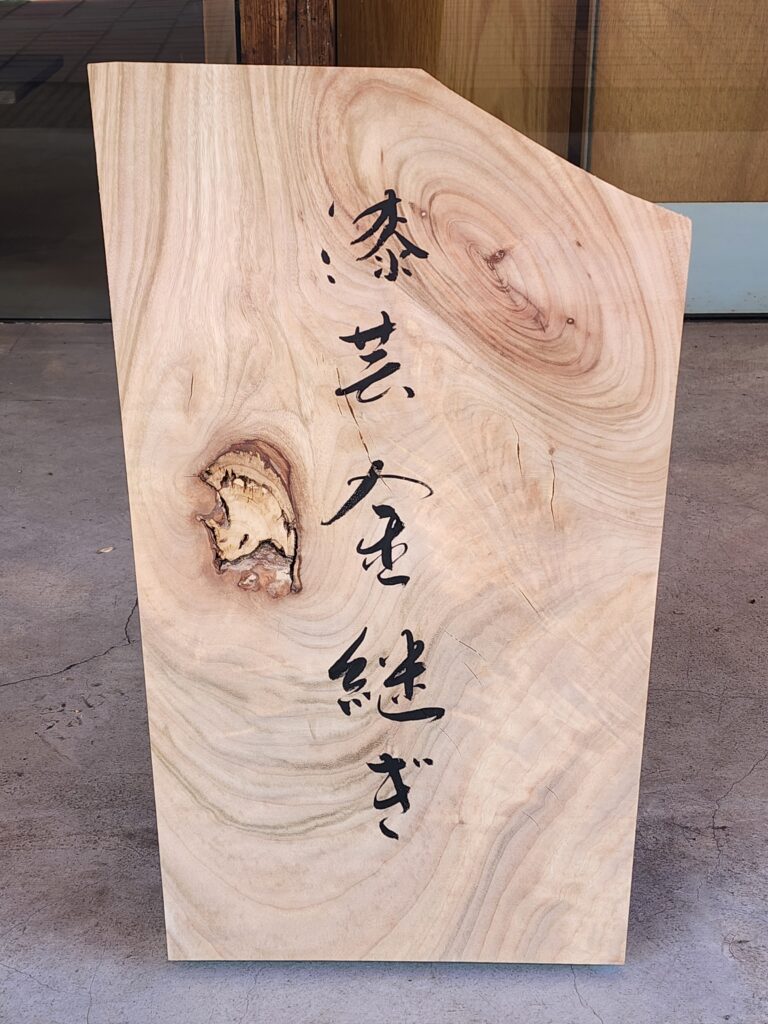 漆芸金継ぎ